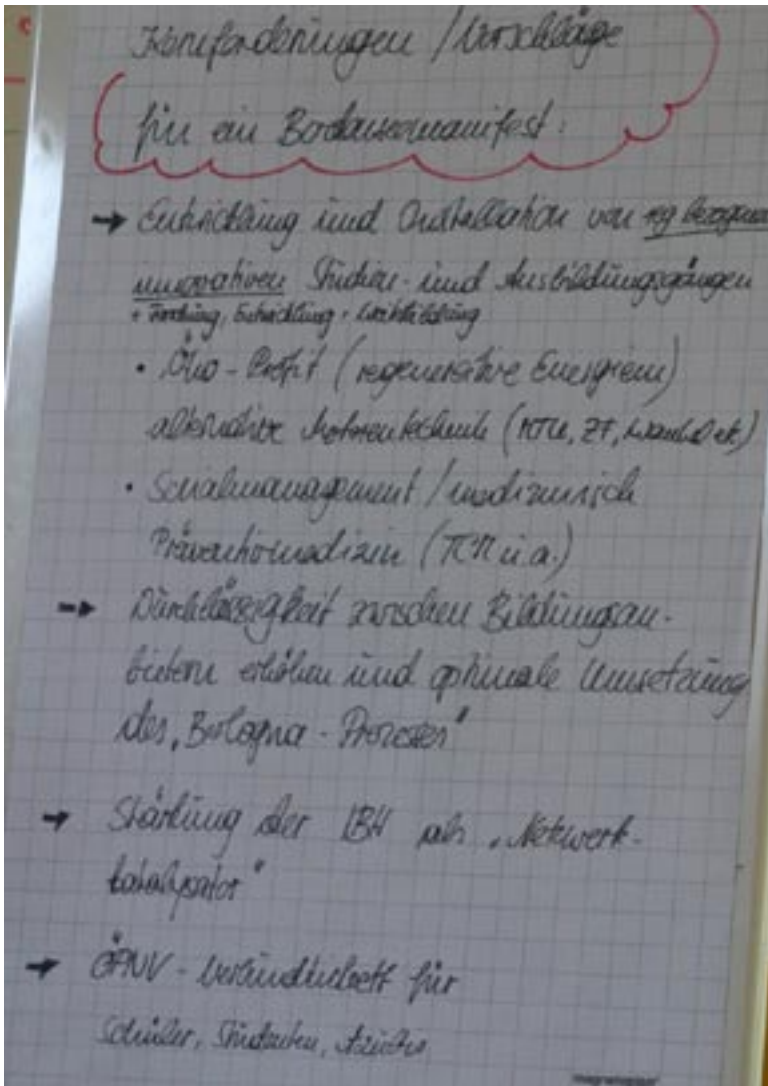 Kernforderungen / Vorschläge
für ein Bodenseemanifest:
→ Entwicklung und Installation von reg bezogenen
innovativen Studien- und Ausbildungsgängen
+ Forschung, Entwicklung + Weiterbildung
• Öko-Profit (regenerative Energien)
alternative Motorentechnik (MTU, ZF,
• Sozialmanagement / medizinisch
Präventivmedizin (TCM u.a.)
→ Durchlässigkeit zwischen Bildungsan-
bietern erhöhen und optimale Umsetzung
des „Bologna-Prozesses“
→ Stärkung der IBH als „Netzwerk-
katalysator“
→ ÖPNV- für
Schüler, Studenten, Azubis